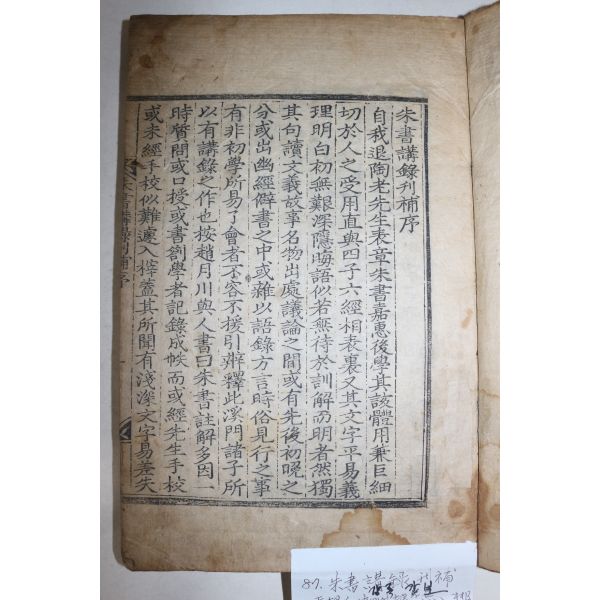 朱書講錄刊補序
自我退陶老先生表章朱書嘉惠後學其該體用兼巨細
切於人之受用直與四子六經相表裏又其文字平易義
理明白初無艱深隱晦語似若無待於訓解而明者然獨
其句讀文義故事名物出處議論之間或有先後初晚之
分或出幽經僻書之中或雜以語錄方言時俗見行之事
有非初學所易了會者不容不援引辨釋此溪門諸子所
以有講錄之作也按趙月川與人書曰朱書註解多因一
時質問或口授或書劄學者記錄成帙而或經先生手校
或未經手校似難遽入梓蓋其所聞有淺深文字易差失
朱書講錄刊補序
一
87. 朱書 講錄刊補